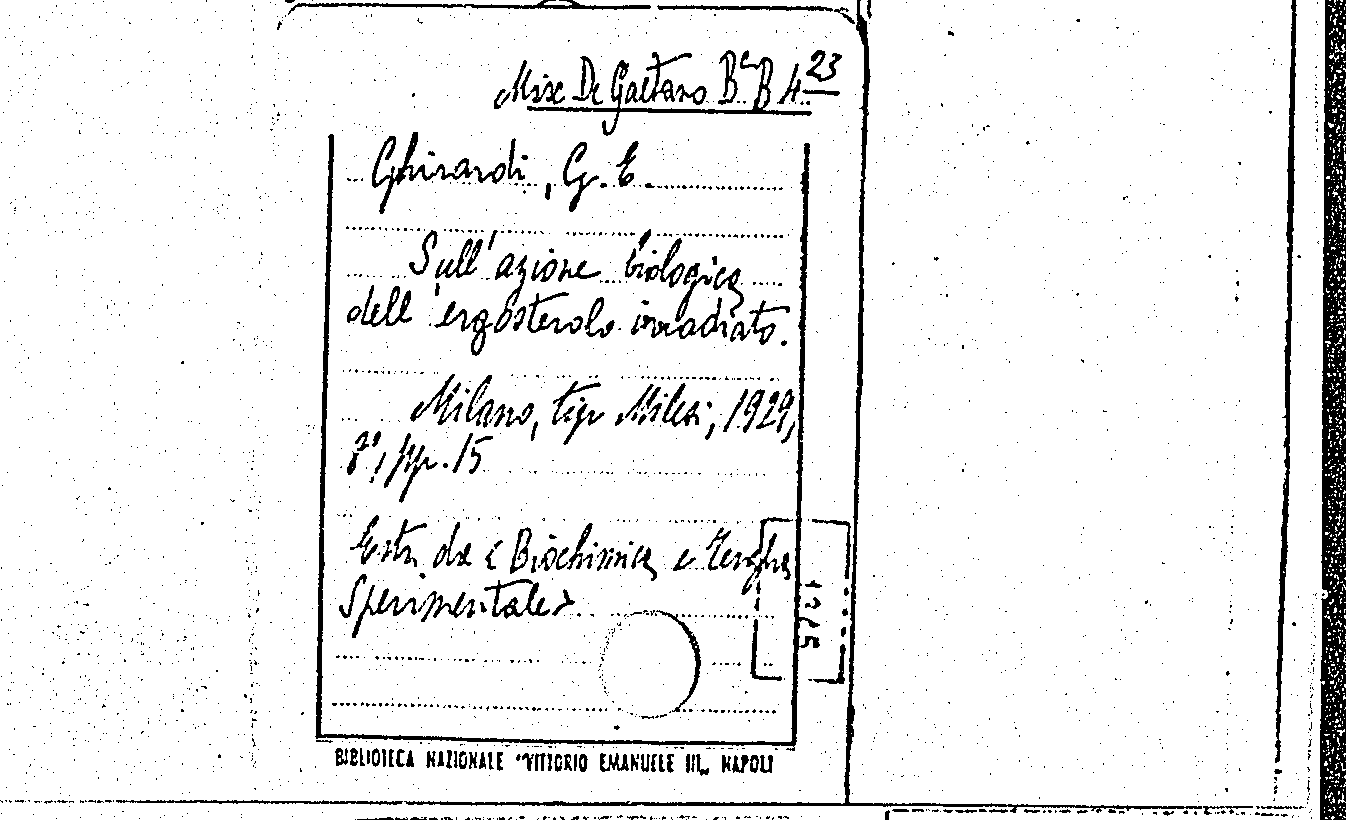 Misc De Gaetano Bᶜ B 4 23
Ghirardi, G. E.
Sull'azione biologica
dell'ergosterolo irradiato.
Milano, tip Milesi, 1929,
8°, pp. 15
Estr. da « Biochimica e Terapia
Sperimentale»
BIBLIOTECA NAZIONALE "VITTORIO EMANUELE III„ NAPOLI